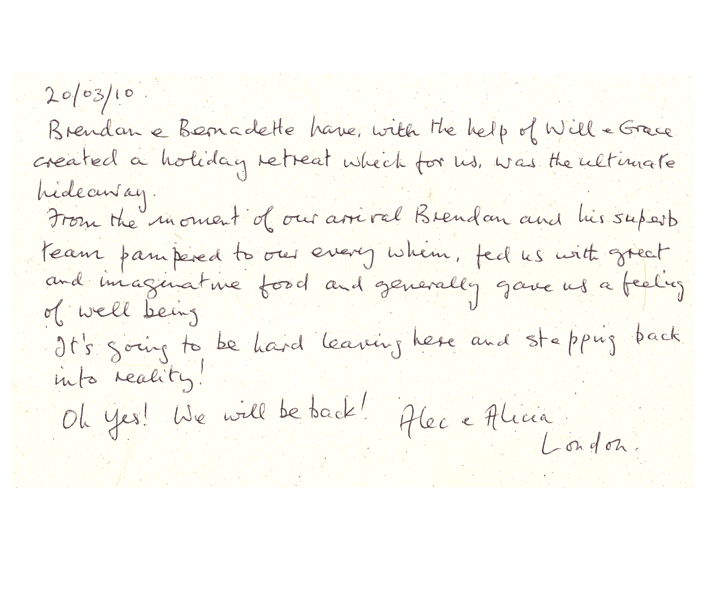 20/03/10.
Brendan e Bernadette have, with the help of Will e Grace
created a holiday retreat which for us, was the ultimate
hideaway.
From the moment of our arrival Brendan and his superb
team pampered to our every whim, fed us with great
and imaginative food and generally gave us a feeling
of well being
It's going to be hard leaving here and stepping back
into reality!
Oh yes! We will be back! Alec e Alicia
London.